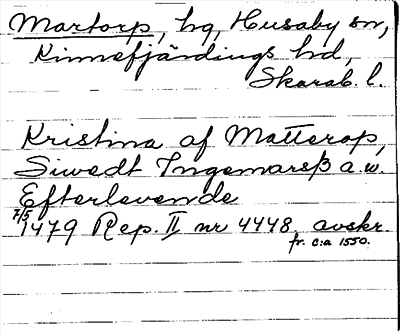 Martorp, hg, Husaby sn,
Kinnefjärdings hd,
Skarab. l.
Kristina af Matterop,
Siwedt Ingemarsß a.w.
Efterlevende
7/5 1479 Rep. II nr 4448, avskr.
fr. c:a 1550.